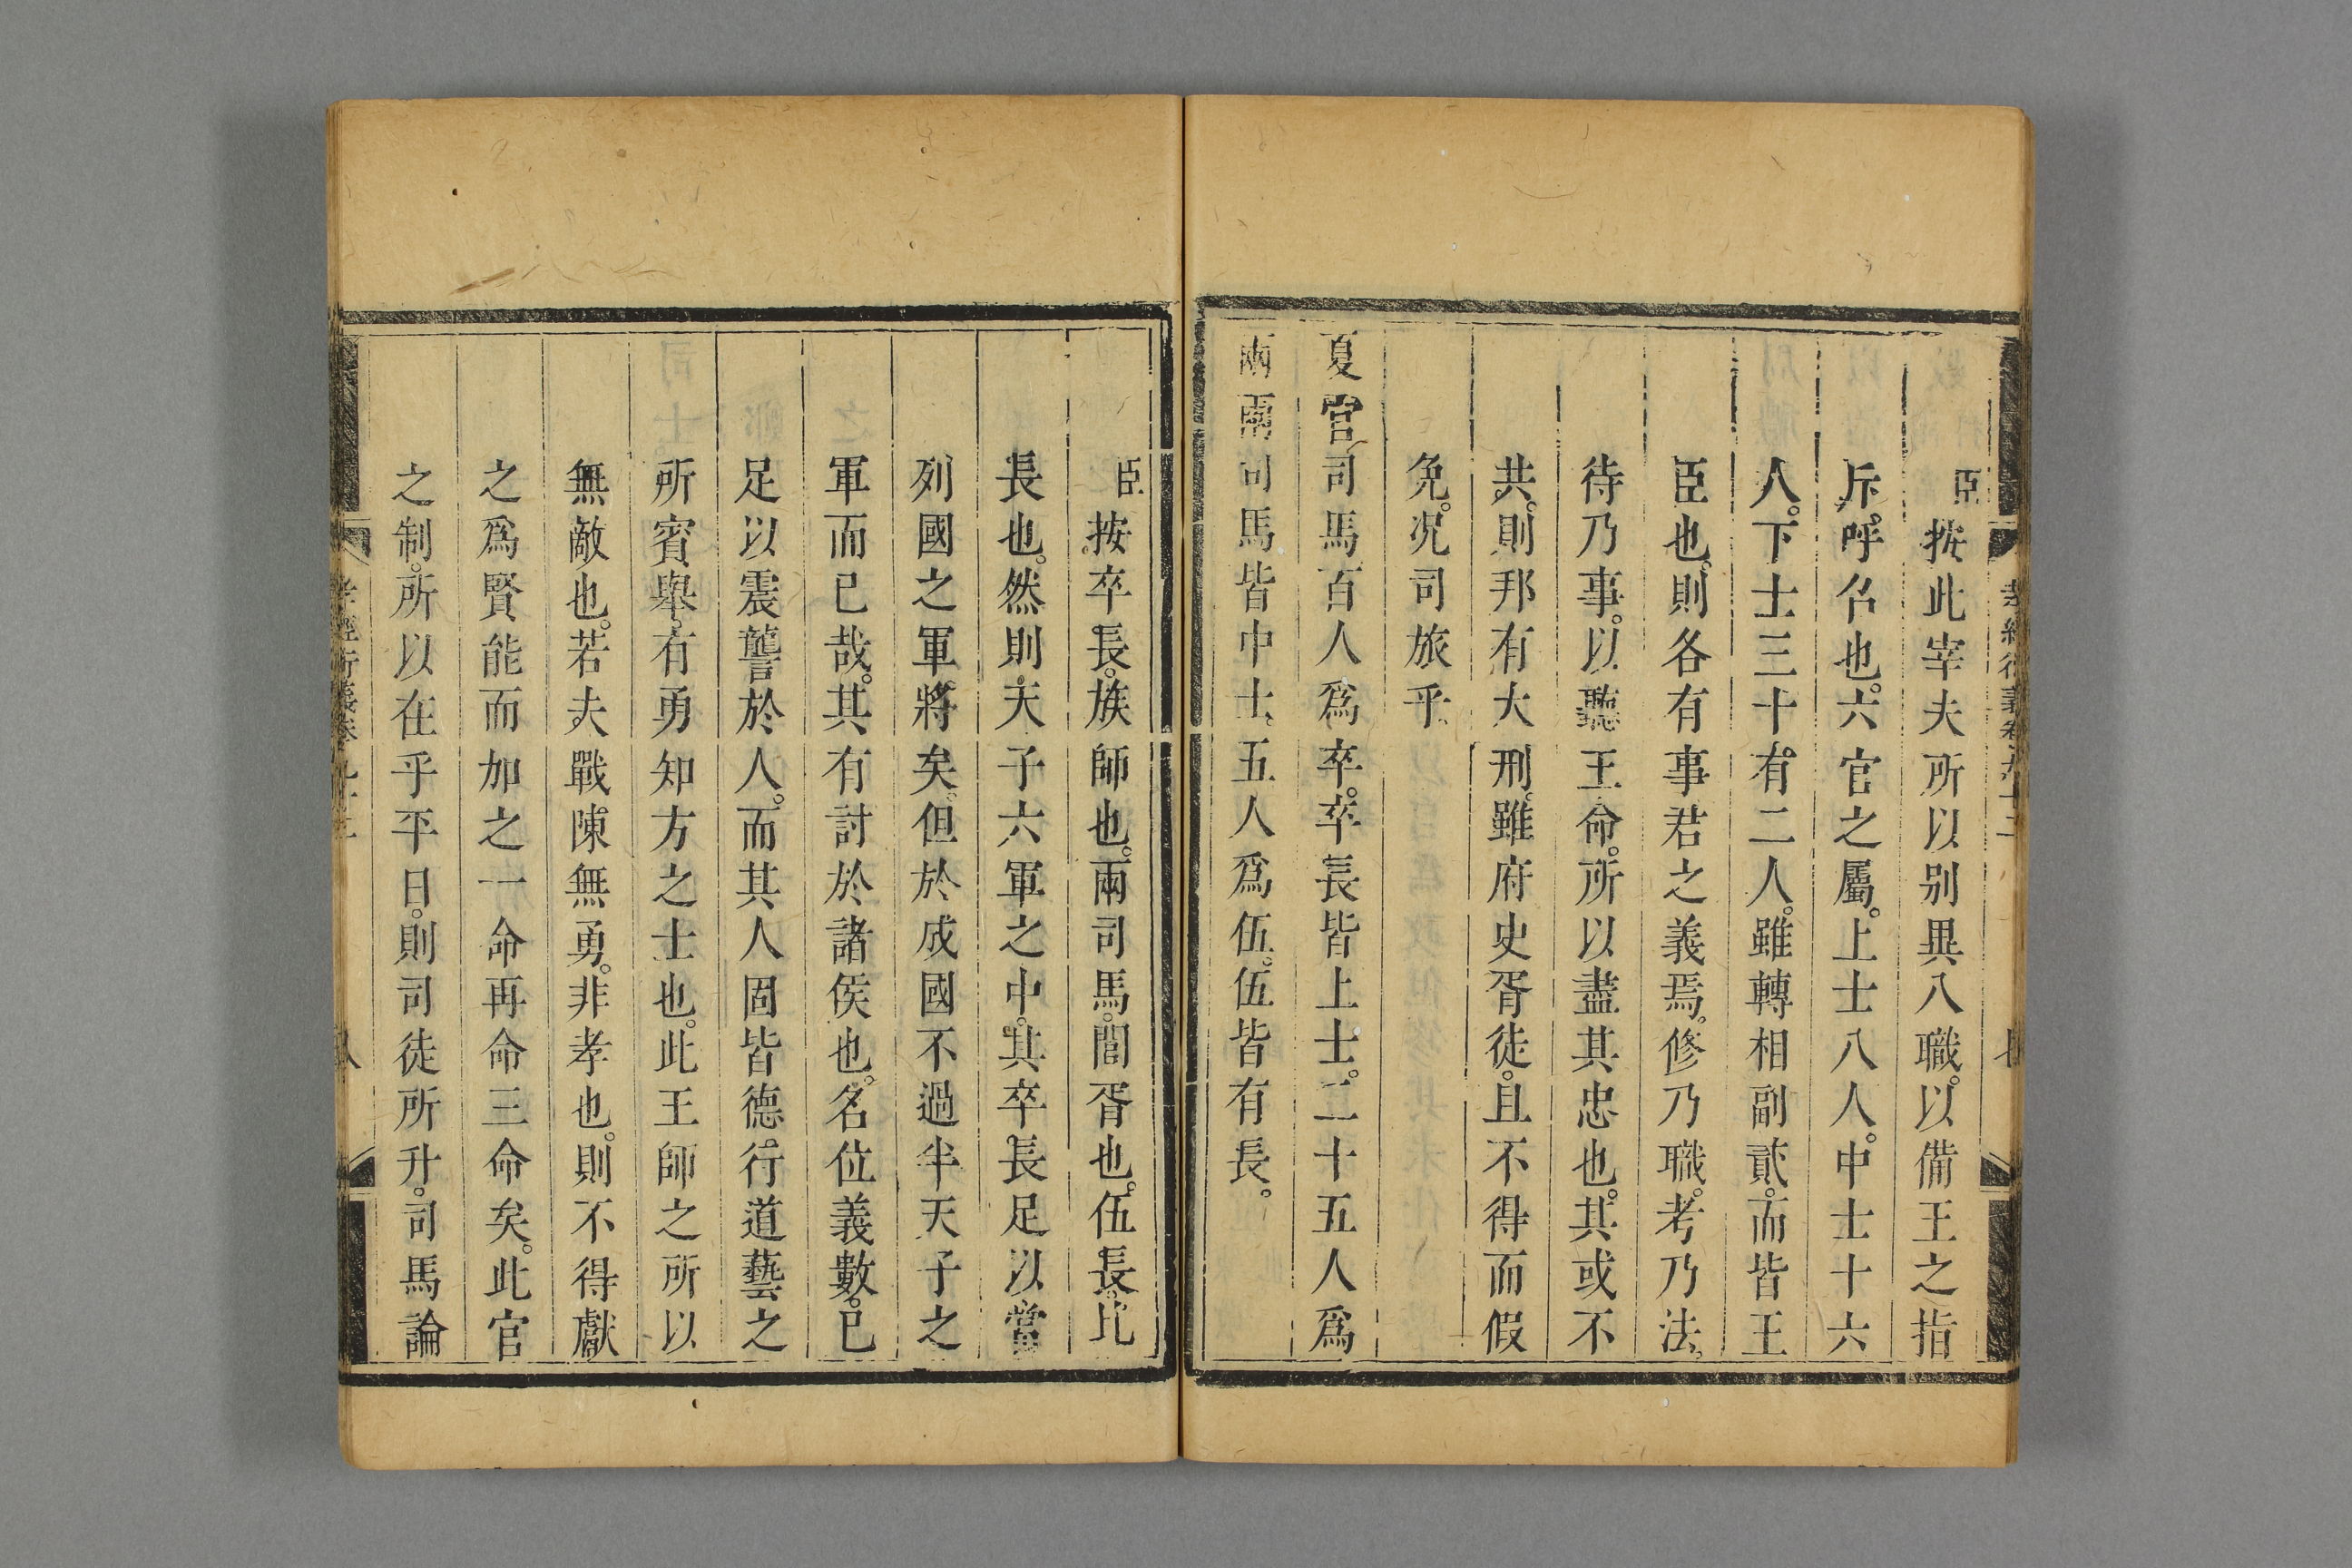 臣按此宰夫所以别異八職。以備王之指
斥。呼名也。六官之屬。上士八人。中士十六
人。下士三十有二人。雖轉相副貳。而皆王
臣也。則各有事君之義焉。修乃職。考乃法。
待乃事。以聽王命。所以盡其忠也。其或不
共。則邦有大刑。雖府史胥徒。且不得而假
免。况司旅乎。
夏官司馬百人爲卒。卒長皆上士。二十五人爲
兩兩司馬皆中士。五人爲伍。伍皆有長。
臣按卒長。族師也。兩司馬。閭胥也。伍長。比
長也。然則天子六軍之中。其卒長足以當
列國之軍將矣。但於成國不過半天子之
軍而已哉。其有討於諸侯也。名位義數。已
足以震讋於人。而其人固皆德行道藝之
所賓舉。有勇知方之士也。此王師之所以
無敵也。若夫戰陳無勇。非孝也。則不得獻
之爲賢能而加之一命再命三命矣。此官
之制。所以在乎平日。則司徒所升。司馬論
孝經衍義卷九十三
八